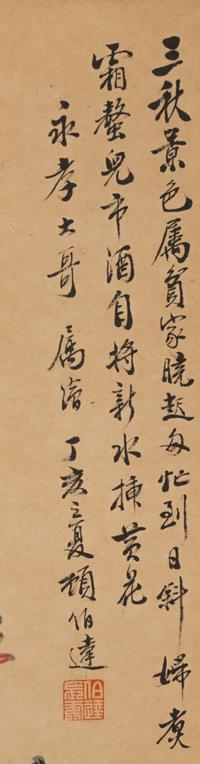 三秋景色属貧家曉起匆忙到日斜婦煮
霜螯兒市酒自將新水插黃花
永孝大哥 属繪 丁亥之夏顧伯達
伯達